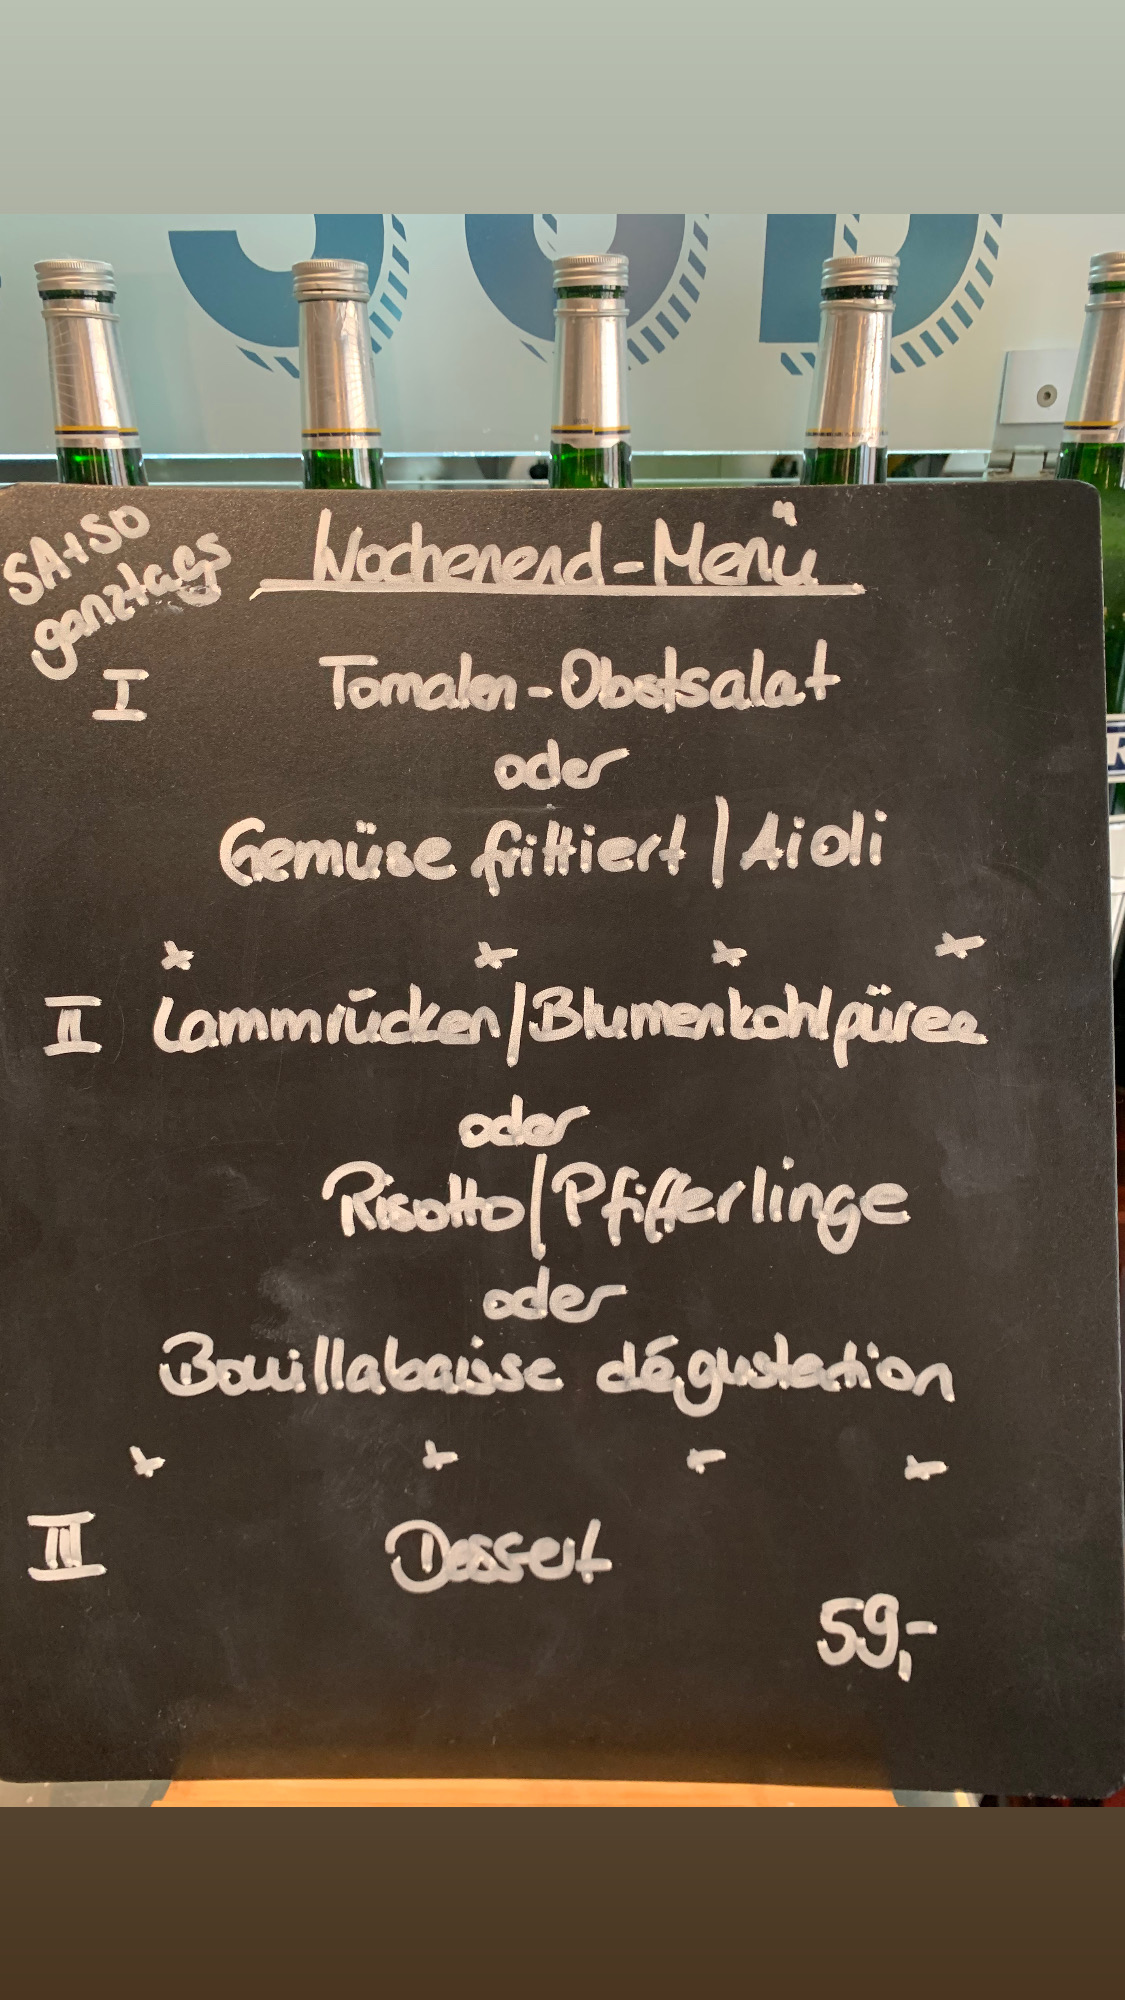 SA+SO
ganztags
Wochenend-Menü
I Tomaten-Obstsalat
oder
Gemüse frittiert | Aioli
x x x x
II Lammrücken/Blumenkohlpüree
oder
Risotto/Pfifferlinge
oder
Bouillabaisse dégustation
x x x x
III Dessert
59,-